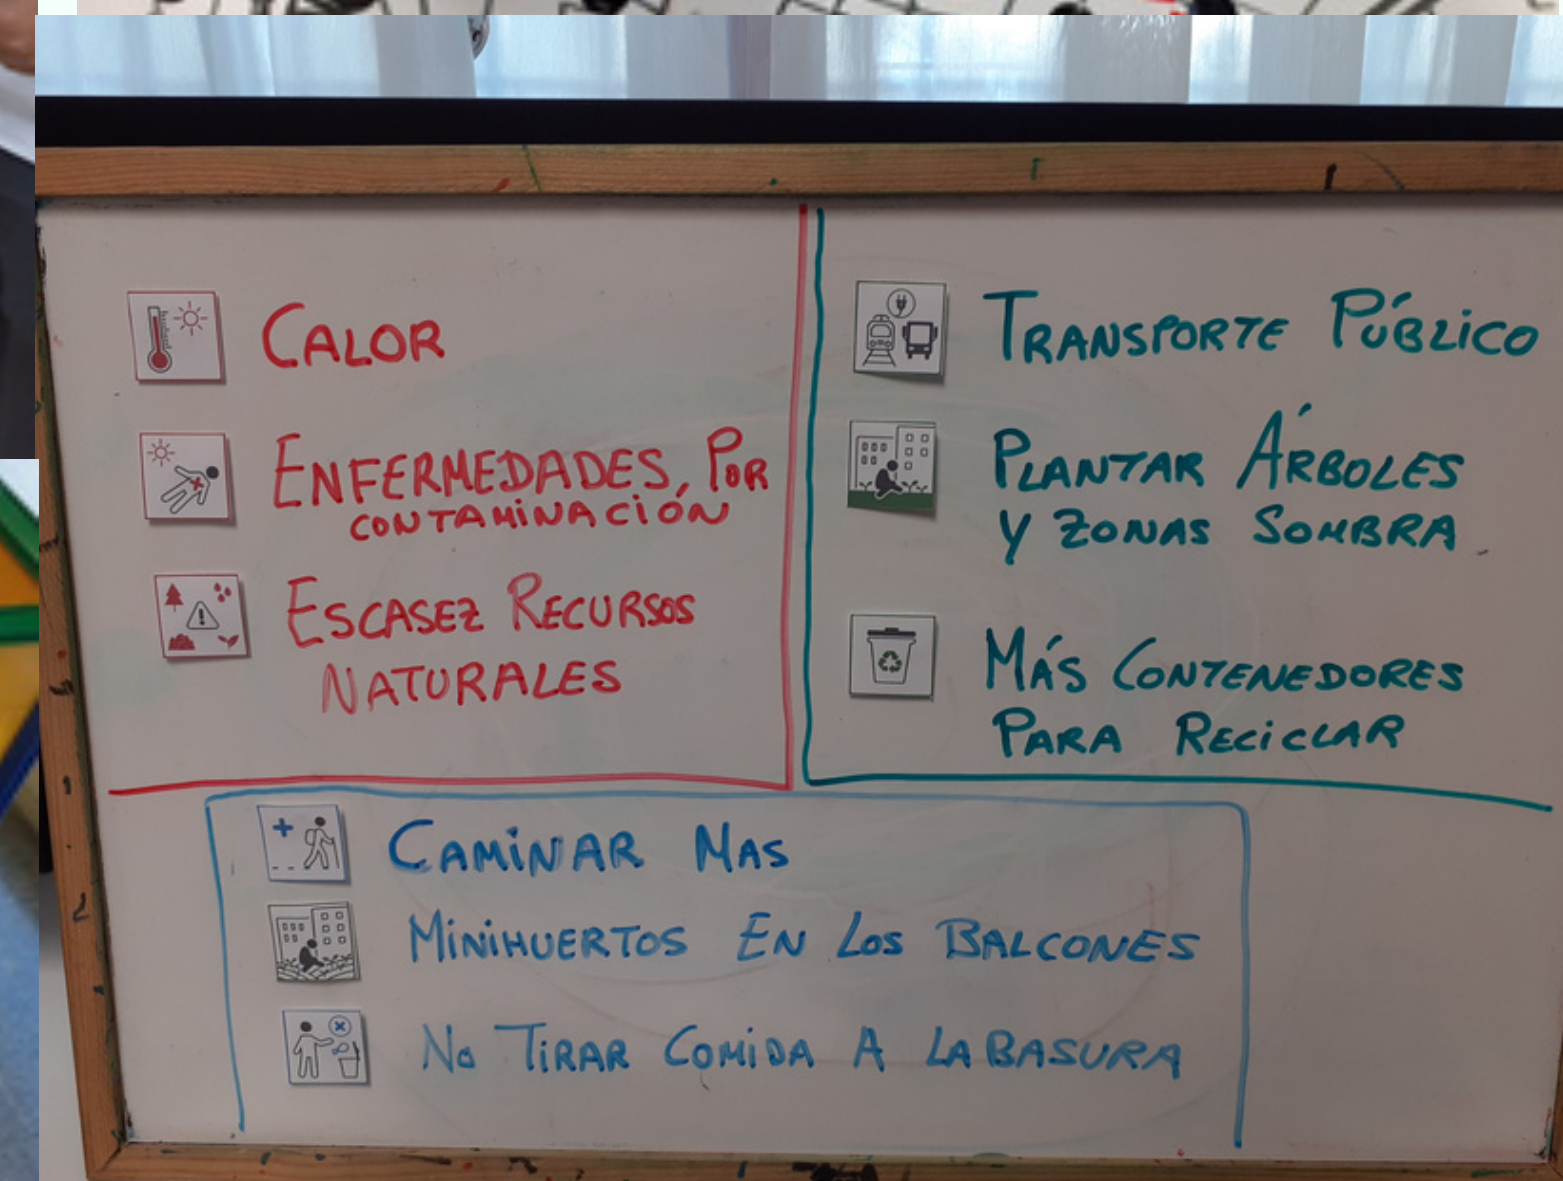 CALOR
ENFERMEDADES, POR
CONTAMINACIÓN
ESCASEZ RECURSOS
NATURALES
TRANSPORTE PÚBLICO
PLANTAR ÁRBOLES
Y ZONAS SOMBRA
MÁS CONTENEDORES
PARA RECICLAR
CAMINAR MAS
MINIHUERTOS EN LOS BALCONES
NO TIRAR COMIDA A LA BASURA